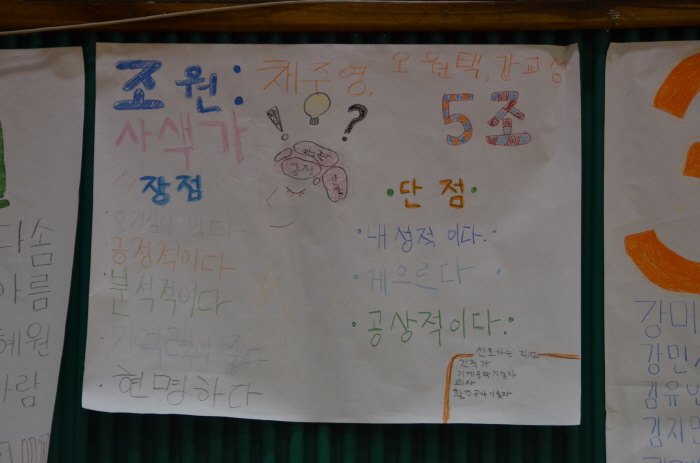 다솜
아름
혜원
사람
조원: 채주영, 오원택, 강교성
사색가
5조
! ?
긍정
장점
호기심이 많다
긍정적이다
·분석적이다
·기억력이 좋다
·현명하다
·단점·
·내성적이다.
·게으르다
·공상적이다.
선호하는 직업
건축가
기계공학기술자
교사
3
강미
강민
김유빈
김지민